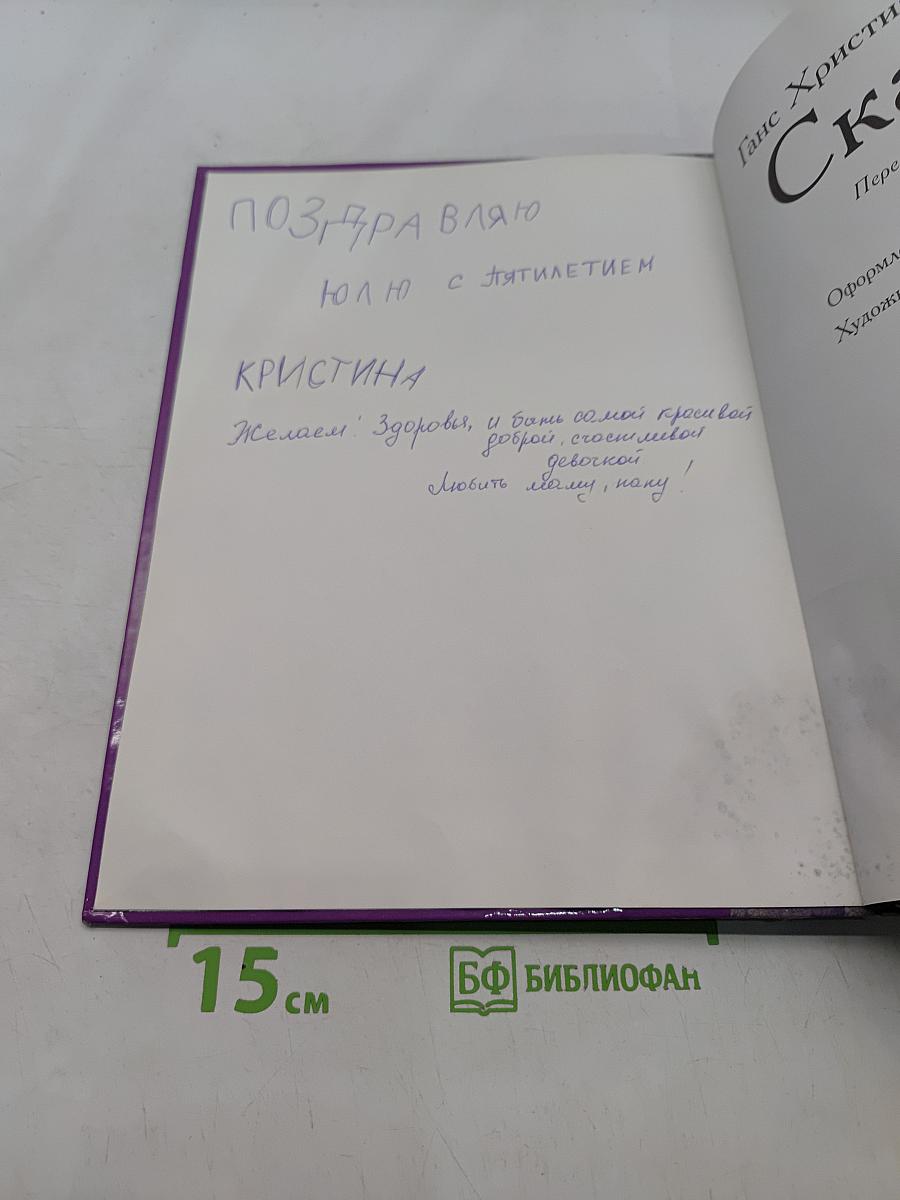 ПОЗДРАВЛЯЮ
ЮЛЮ С ПЯТИЛЕТИЕМ
КРИСТИНА
Желаем! Здоровья, и быть самой красивой
доброй, счастливой
девочкой
Любить маму, папу!
Ганс Христи
Ска
Пере
Оформл
Худож
15 см
БФ БИБЛИОФАН